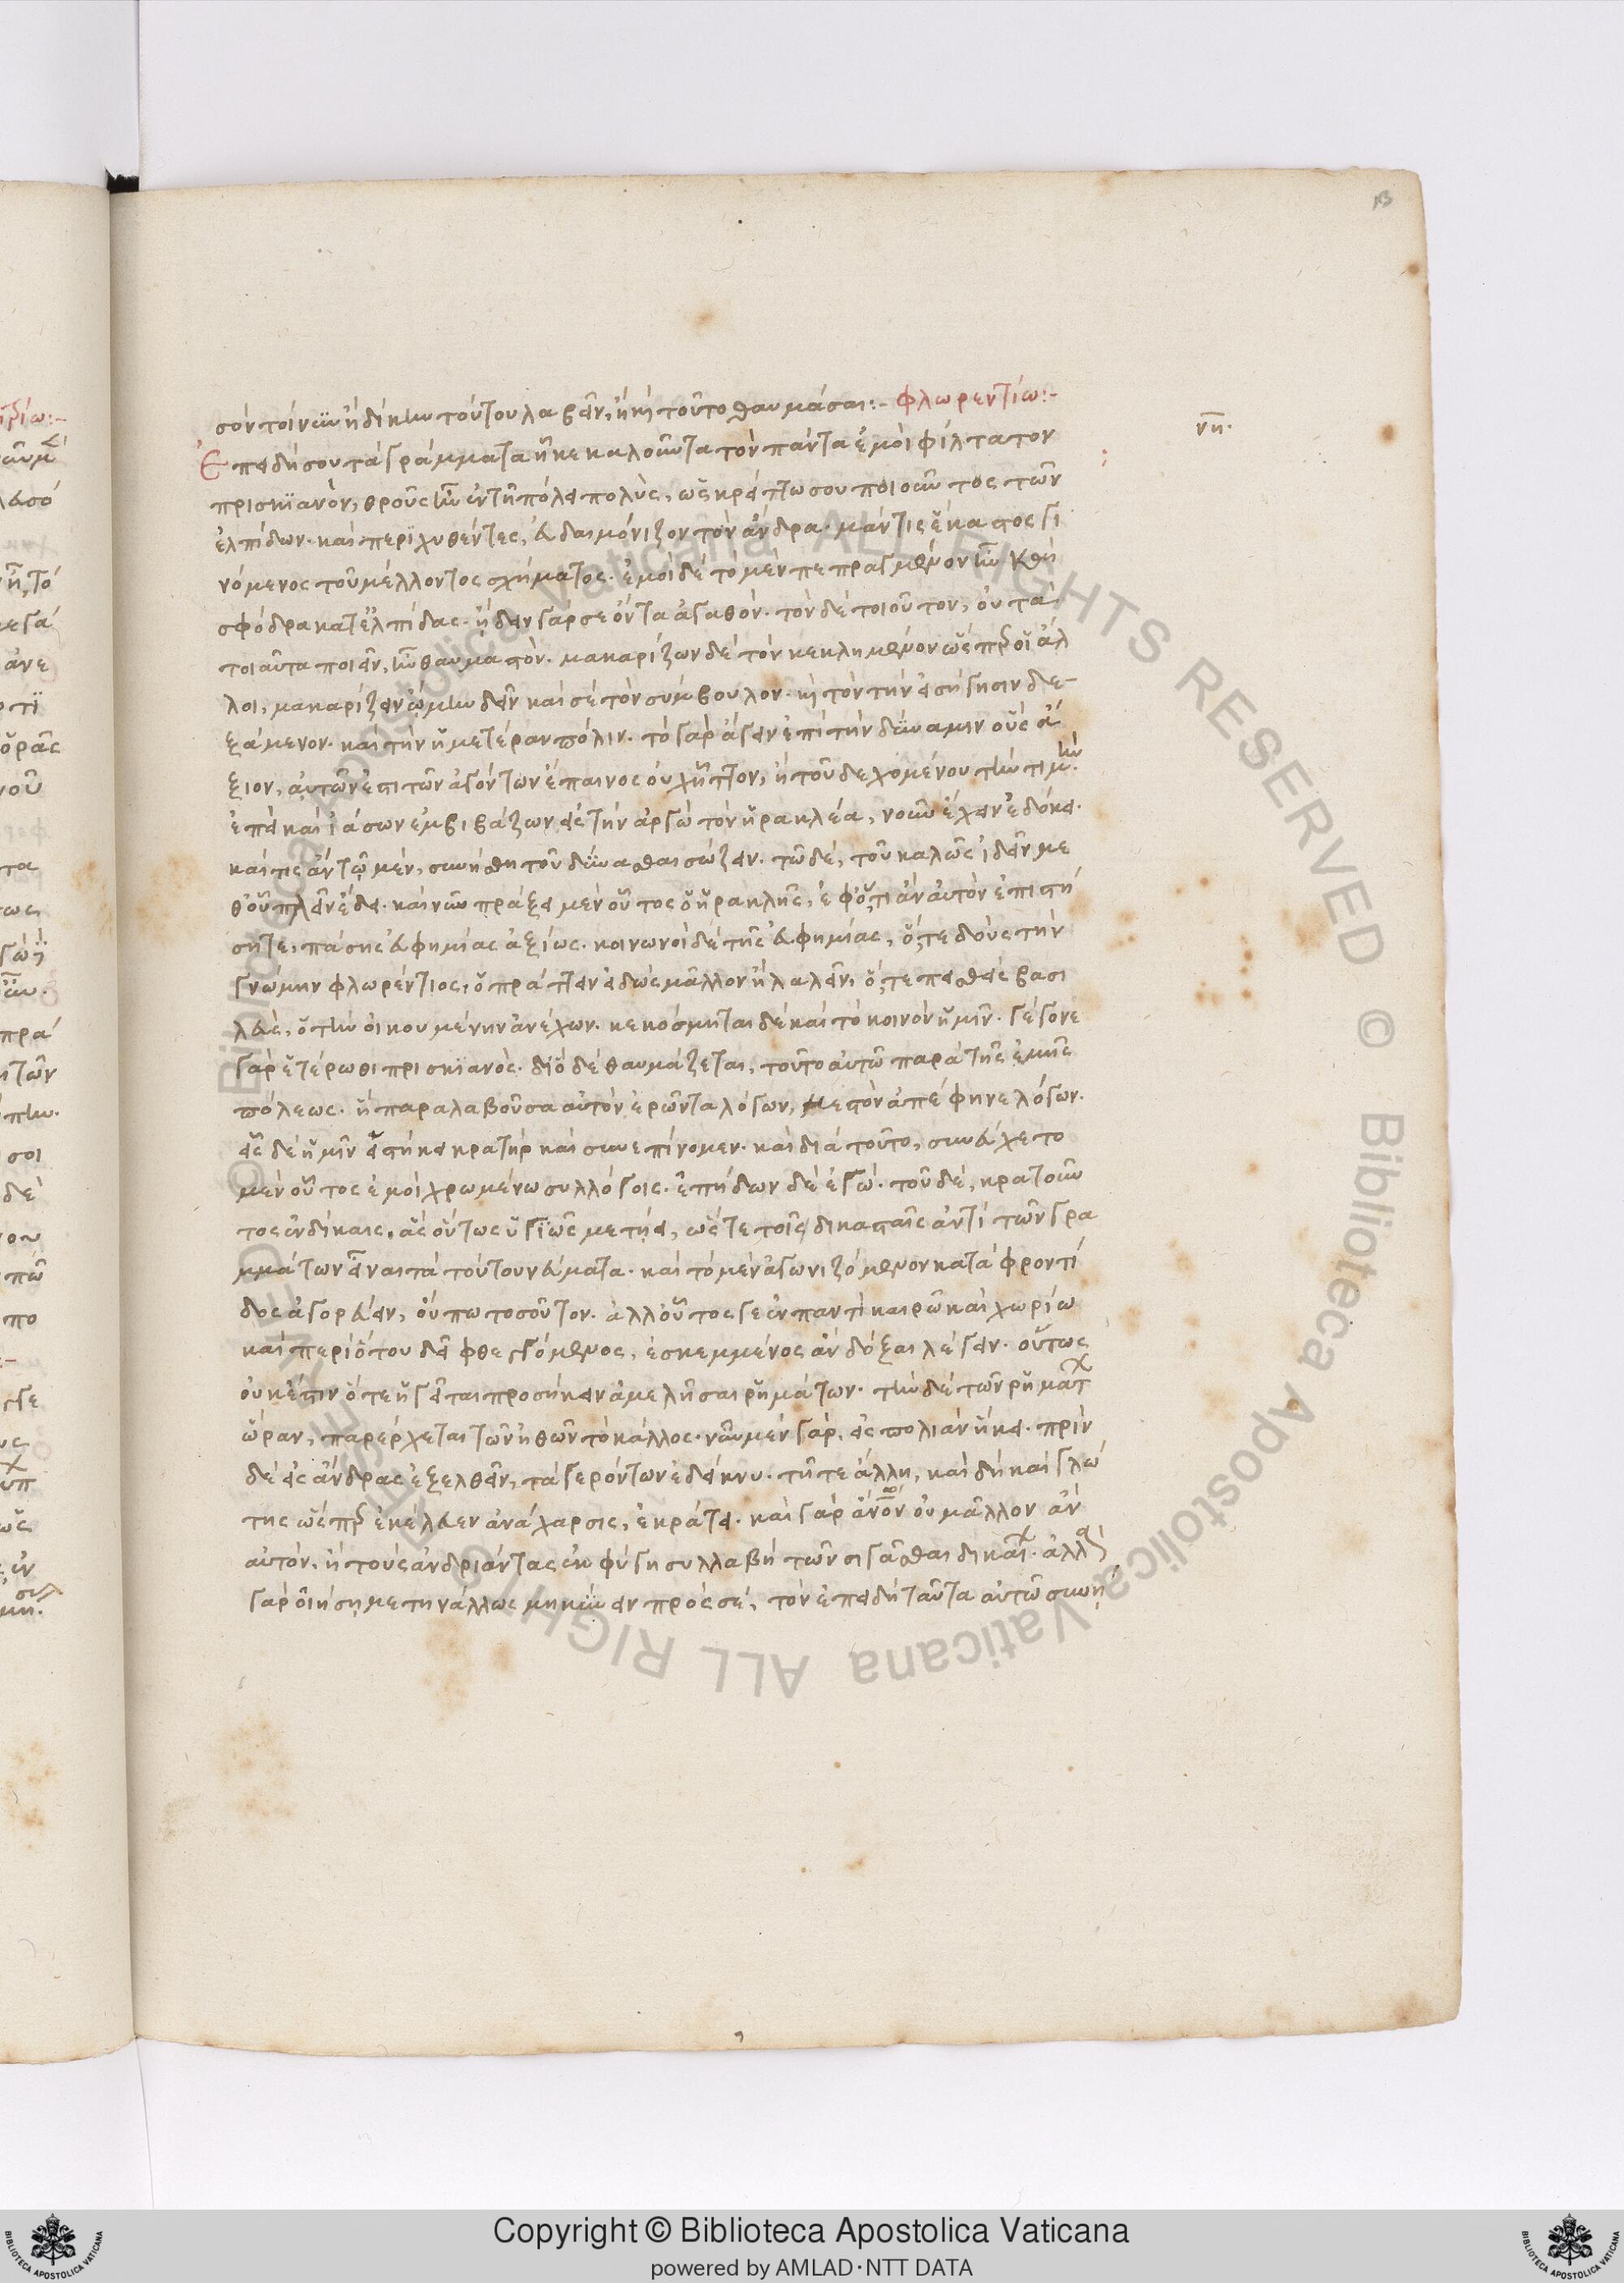 σὸν τοίνυν ἢ δίκην τούτου λαβεῖν, ἢ καὶ τοῦτο θαυμάσαι:- φλωρεντίω:-
νη.
Ἐπειδή σου τὰ γράμματα ἧκε καλοῦντα τὸν πάντα ἐμοὶ φίλτατον
πρισκιανὸν, θροῦς ἦν ἐν τῆ πόλει πολὺς, ὡς κρείττω σου ποιοῦντος τῶν
ἐλπίδων. καὶ περιχυθέντες, εὐδαιμόνιζον τὸν ἄνδρα. μάντις ἕκαστος γι
νόμενος τοῦ μέλλοντος σχήματος. ἐμοὶ δὲ τὸ μὲν πεπραγμένον ἦν
σφόδρα κατ' ἐλπίδας. ἤδειν γάρ σε ὄντα ἀγαθόν. τὸν δὲ τοιοῦτον, οὐ τὰ
τοιαῦτα ποιεῖν, ἦν θαυμαστόν. μακαρίζων δὲ τὸν κεκλημένον ὥσπερ οἱ ἄλ
λοι, μακαρίζειν ᾤμην δεῖν καὶ σὲ τὸν σύμβουλον. καὶ τὸν τὴν εἰσήγησιν δε-
ξάμενον. καὶ τὴν ἡμετέραν πόλιν. τὸ γὰρ ἄγειν ἐπὶ τὴν δύναμιν οὓς ἄ
ξιον, αὐτῶν ἐστι τῶν ἀγόντων ἔπαινος οὐχ ἧττον, ἢ τοῦ δεχομένου τὴν τιμήν.
ἐπεὶ καὶ ἰάσων ἐμβιβάζων εἰς τὴν ἀργὼ τὸν ἡρακλέα, νοῦν ἔχειν ἐδόκει.
καίπερ ἀντῶ μὲν, συνήδη τοῦ δύνασθαι σώζειν. τῶ δὲ, τοῦ καλῶς ἰδεῖν με
θ' οὗ πλεῖν ἔδει. καὶ νῦν πράξει μὲν οὗτος ὁ ἡρακλῆς, ἐφ' ὅ,τι ἂν αὐτὸν ἐπιστή
σητε, πάσης εὐφημίας ἀξίως. κοινωνοὶ δὲ τῆς εὐφημίας, ὅ,τε δοὺς τὴν
γνώμην φλωρέντιος, ὁ πράττειν εἰδὼς μᾶλλον ἢ λαλεῖν, ὅ,τε πεισθεὶς βασι
λεὺς, ὁ τὴν οἰκουμένην ἀνέχων. κεκόσμηται δὲ καὶ τὸ κοινὸν ἡμῖν. γέγονε
γὰρ ἑτέρωθι πρισκιανός. διὸ δὲ θαυμάζεται, τοῦτο αὐτῶ παρὰ τῆς ἐμῆς
πόλεως. ἣ παραλαβοῦσα αὐτὸν ἐρῶντα λόγων, μεστὸν ἀπέφηνε λόγων.
εἷς δὲ ἡμῖν εἱστήκει κρατὴρ καὶ συνεπίνομεν. καὶ διὰ τοῦτο, συνεύχετο
μὲν οὗτος ἐμοὶ χρωμένω συλλόγοις. ἐπήδων δὲ ἐγώ. τοῦδε, κρατοῦν
τος ἐν δίκαις, ἃς οὕτως ὑγιῶς μετήει, ὥστε τοῖς δικασταῖς ἀντὶ τῶν γρα
μμάτων εἶναι τὰ τούτου νεύματα. καὶ τὸ μὲν ἀγωνιζόμενον κατὰ φροντί
δος ἀγορεύειν, οὔπω τοσοῦτον. ἀλλ' οὗτός γε ἐν παντὶ καιρῶ καὶ χωρίω
καὶ περὶ ὅτου δεῖ φθεγγόμενος, ἐσκεμμένος ἂν δόξαι λέγειν. οὕτως
οὐκ ἔστιν ὅτε ἡγεῖται προσήκειν ἀμελῆσαι ῥημάτων. τὴν δὲ τῶν ῥημάτ
ὥραν, παρέρχεται τῶν ἠθῶν τὸ κάλλος. νῦν μὲν γὰρ, εἰς πολιὰν ἥκει. πρὶν
δὲ εἰς ἄνδρας ἐξελθεῖν, τὰ γερόντων ἐδείκνυ. τῆ τε ἄλλη, καὶ δὴ καὶ γλώ
της ὥσπερ ἐκέλευεν ἀνάχαρσις, ἐκράτει. καὶ γὰρ οὐ μᾶλλον ἂν
αὐτὸν, ἢ τοὺς ἀνδριάντας ἐκφύγη συλλαβὴ τῶν σιγᾶσθαι δικαί. ἀλλὰ
γὰρ οἰήση με τηνάλλως μηκύνειν πρὸς σέ, τὸν ἐπειδὴ ταῦτα αὐτῶ συνή
Copyright © Biblioteca Apostolica Vaticana
powered by AMLAD · NTT DATA